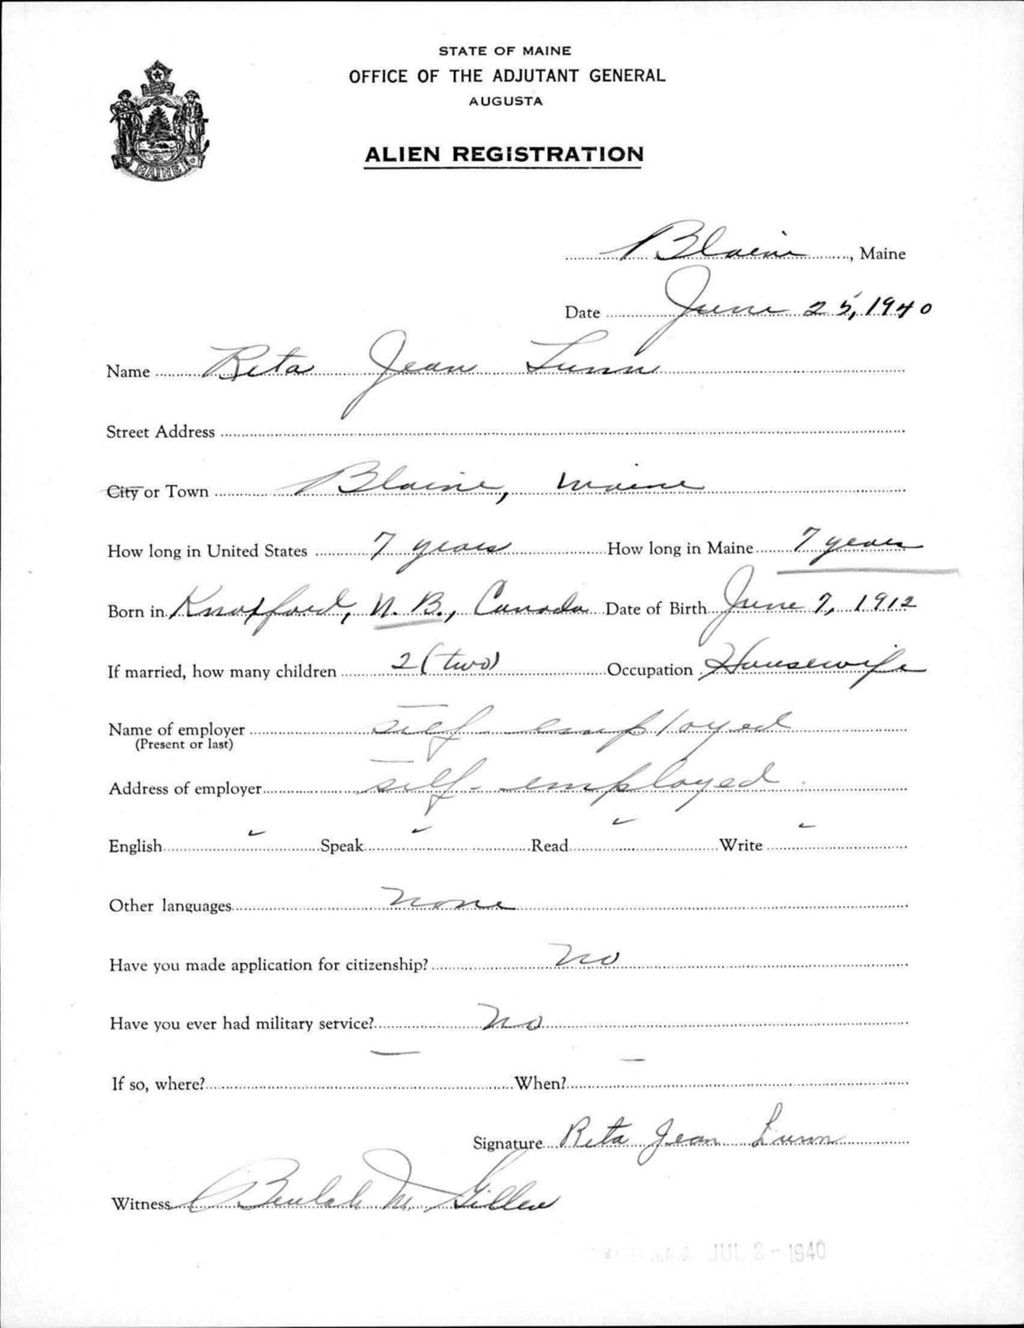 STATE OF MAINE
OFFICE OF THE ADJUTANT GENERAL
AUGUSTA
ALIEN REGISTRATION
MAINE
Blaine, Maine
Date June 25, 1940
Name Rita Jean Lunn
Street Address
City or Town Blaine, Maine
How long in United States 7 years How long in Maine 7 years
Born in Knoxford, N. B., Canada Date of Birth June 7, 1912
If married, how many children 2 (two) Occupation Housewife
Name of employer self employed
(Present or last)
Address of employer self-employed.
English ✓ Speak ✓ Read ✓ Write ✓
Other languages none
Have you made application for citizenship? no
Have you ever had military service? no
If so, where? — When? —
Signature Rita Jean Lunn
Witness Beulah M. Gillen
A.G.O. JUL 3 - 1940